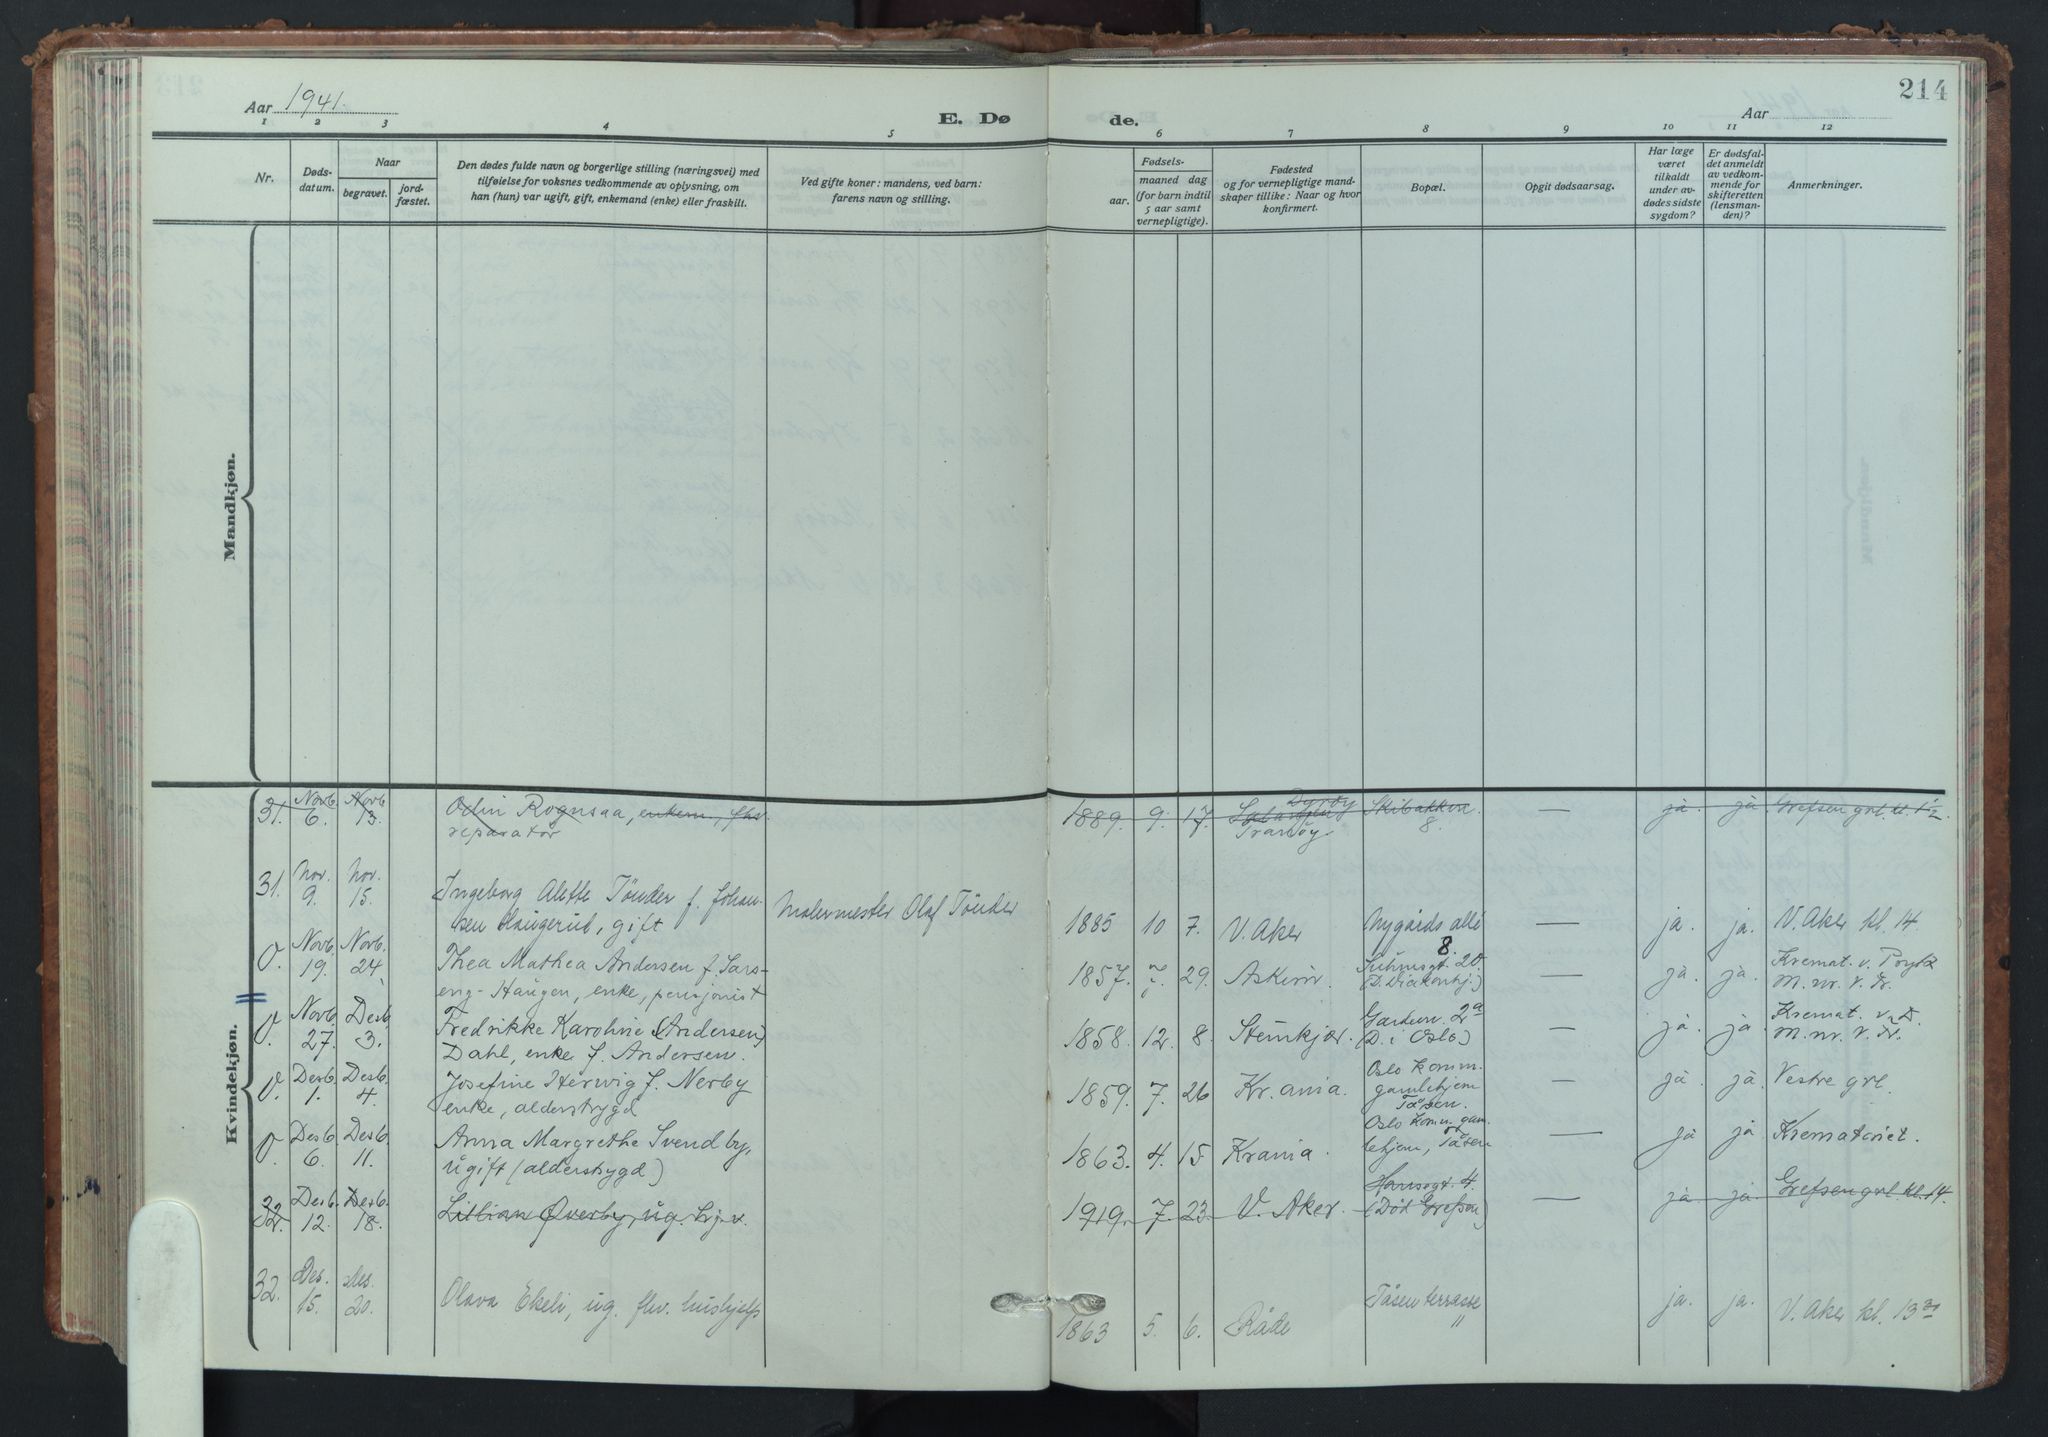 Aar 1941.
E. Dø
de.
214
Aar
1 2 3 4 5
6 7 8 9 10 11 12
Nr.
Døds-
datum.
Naar
begravet.
jord-
fæstet.
Den dødes fulde navn og borgerlige stilling (næringsvei) med
tilføielse for voksnes vedkommende av oplysning, om
han (hun) var ugift, gift, enkemand (enke) eller fraskilt.
Ved gifte koner: mandens, ved barn:
farens navn og stilling.
Fødsels-
aar.
maaned dag
(for barn indtil
5 aar samt
vernepligtige).
Fødested
og for vernepligtige mand-
skaper tillike: Naar og hvor
konfirmert.
Bopæl.
Opgit dødsaarsag.
Har læge
været
tilkaldt
under av-
dødes sidste
sygdom?
Er dødsfal-
det anmeldt
av vedkom-
mende for
skifteretten
(lensman-
den)?
Anmerkninger.
Mandkjøn.
Kvindekjøn.
31. Novb. 6. Novb. 13. Odin Rognsaa, enkem.,
reparatør
1889. 9. 17. Dyrøy
Tranøy. Skibakken
8. — ja. ja Grefsen grl. kl. 1½.
31. Nov. 9. Nov. 15. Ingeborg Alette Tönder f. Johan-
sen Haugerud, gift
Malermester Olaf Tönder
1885 10 7. V. Aker Nygårds allé
8 — ja. ja. V. Aker kl. 14.
O. Novb. 19. Novb. 24 Thea Mathea Andersen f. Sars-
eng-Haugen, enke, pensjonist
1857. 7. 29. Askim. Suhmsgt. 20.
(D. Diakonhj.) — ja. ja. Kremat. v.
M. nr. V. Fr.
O. Novb. 27. Desb. 3. Fredrikke Karoline (Andersen)
Dahl, enke f. Andersen.
1858. 12. 8. Steinkjær. 2a
(D. i Oslo) — ja ja Kremat. v. D.
M. nr. V. Fr.
O. Desb. 1. Desb. 4. Josefine Herwig f. Nerby
enke, alderstrygd
1859. 7. 26 Kr.ania. Oslo komm.
gamlehjem
Tåsen. — ja ja. Vestre grl.
O. Desb. 6. Desb. 11. Anna Margrethe Svendby,
ugift (alderstrygd)
1863. 4. 15 Krania. Oslo komm. gam-
lehjem, Tåsen — ja ja Krematoriet.
32. Desb. 12. Desb. 18. Lillian Øverby, ug.
1919. 7. 23. V. Aker. Hansgt. 4.
(Död Grefsen) — ja. ja. Grefsen grl. kl. 14.
32. Des. 15. des. 20. Olava Ekeli, ug. fhv. hushjelp
1863 5. 6. Råde Tåsen terrasse
" ja. ja. V. Aker kl. 13 30